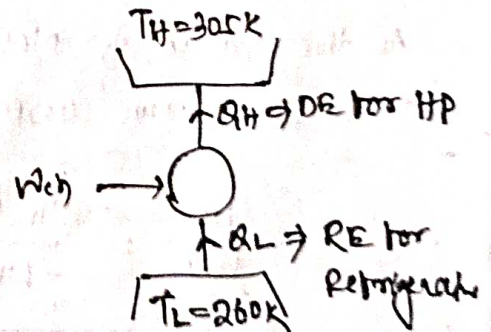 TH=305K
QH ⇒ DE for HP
Win
QL ⇒ RE for
Refrigerator
TL=260K